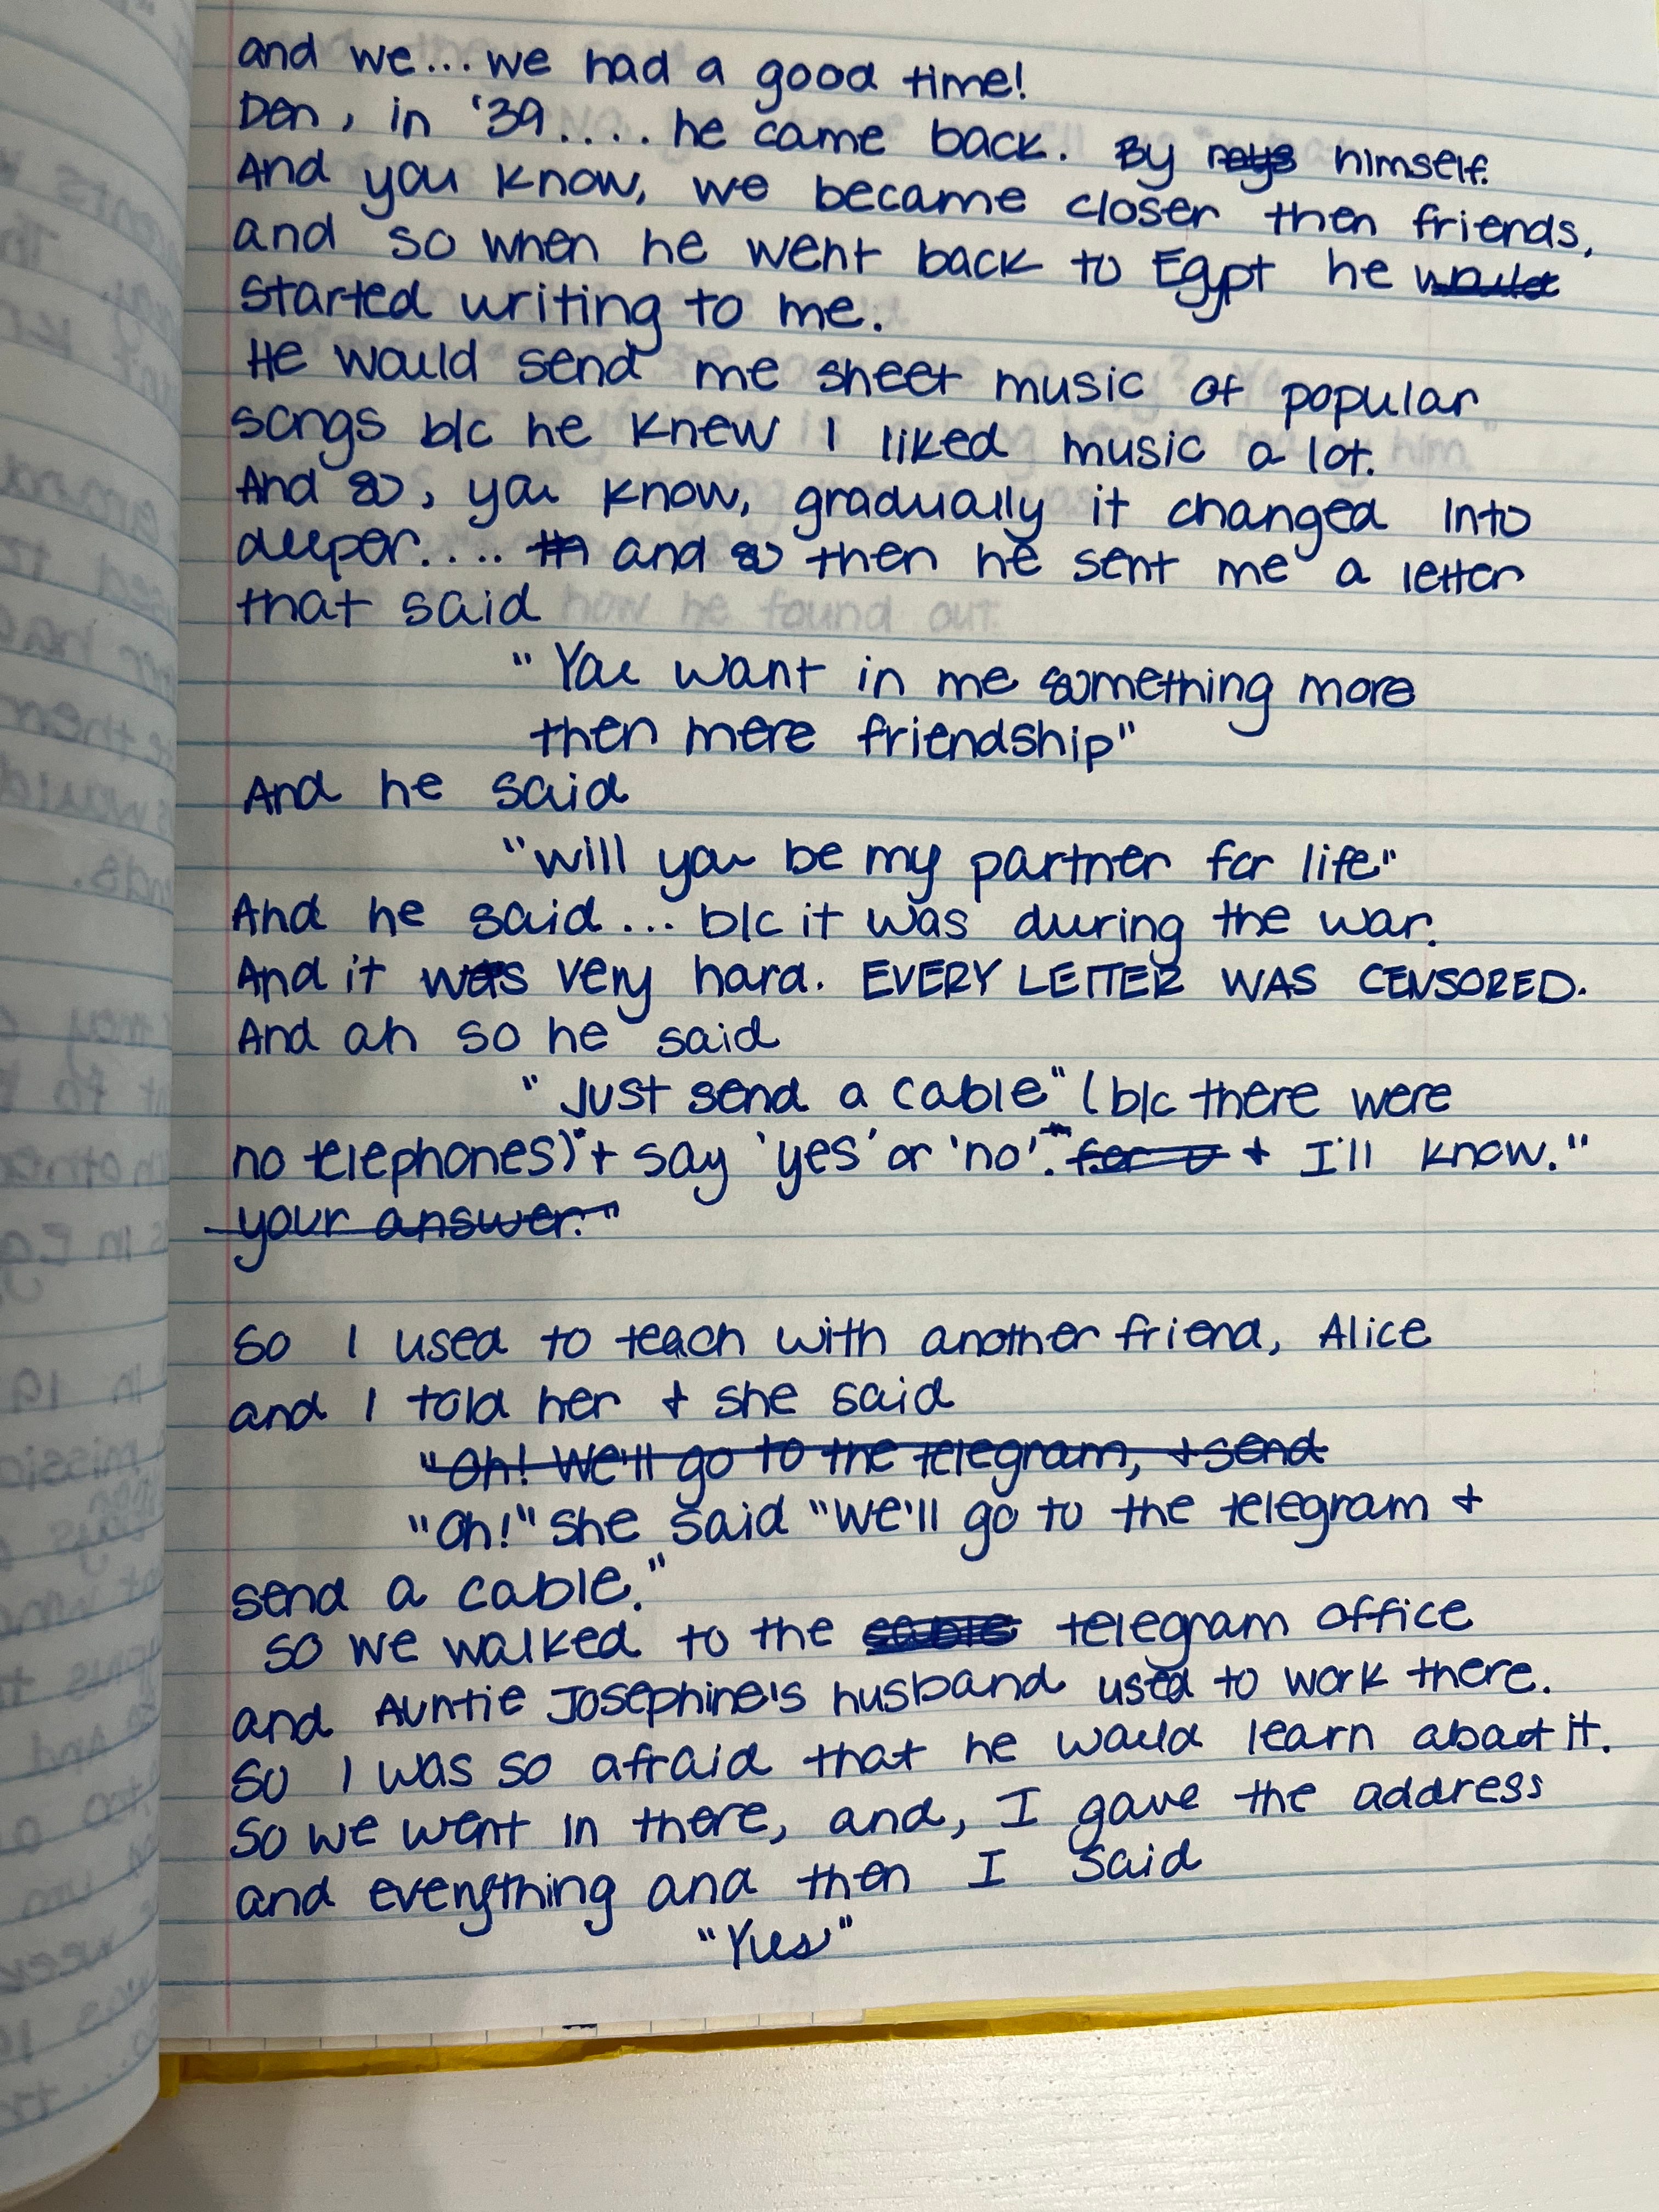 and we... we had a good time!
Den, in '39.... he came back. By himself.
And you know, we became closer then friends,
and so when he went back to Egypt he would
started writing to me.
He would send me sheet music of popular
songs b/c he knew I liked music a lot.
And so, you know, gradually it changed into
deeper.... th and so then he sent me a letter
that said
"You want in me something more
then mere friendship"
And he said
"will you be my partner for life"
And he said... b/c it was during the war.
And it was very hard. EVERY LETTER WAS CENSORED.
And ah so he said
"Just send a cable" (b/c there were
no telephones)"+ say 'yes' or 'no'." for + I'll know."
your answer."
So I used to teach with another friend, Alice
and I told her + she said
"Oh! We'll go to the telegram, + send
"Oh!" she said "We'll go to the telegram +
send a cable."
so we walked to the cable telegram office
and Auntie Josephine's husband used to work there.
So I was so afraid that he would learn about it.
So we went in there, and, I gave the address
and everything and then I said
"Yes"